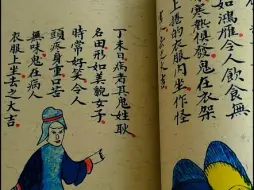 如鴻雁令人飲食無
寒熱俱發鬼在衣架
上捲的衣服内坐作怪
丁未日病者其鬼姓耿
名田形如美貌女子
時常好笑令人
頭疼身重口苦
無味鬼在病人
衣服上坐去之大吉